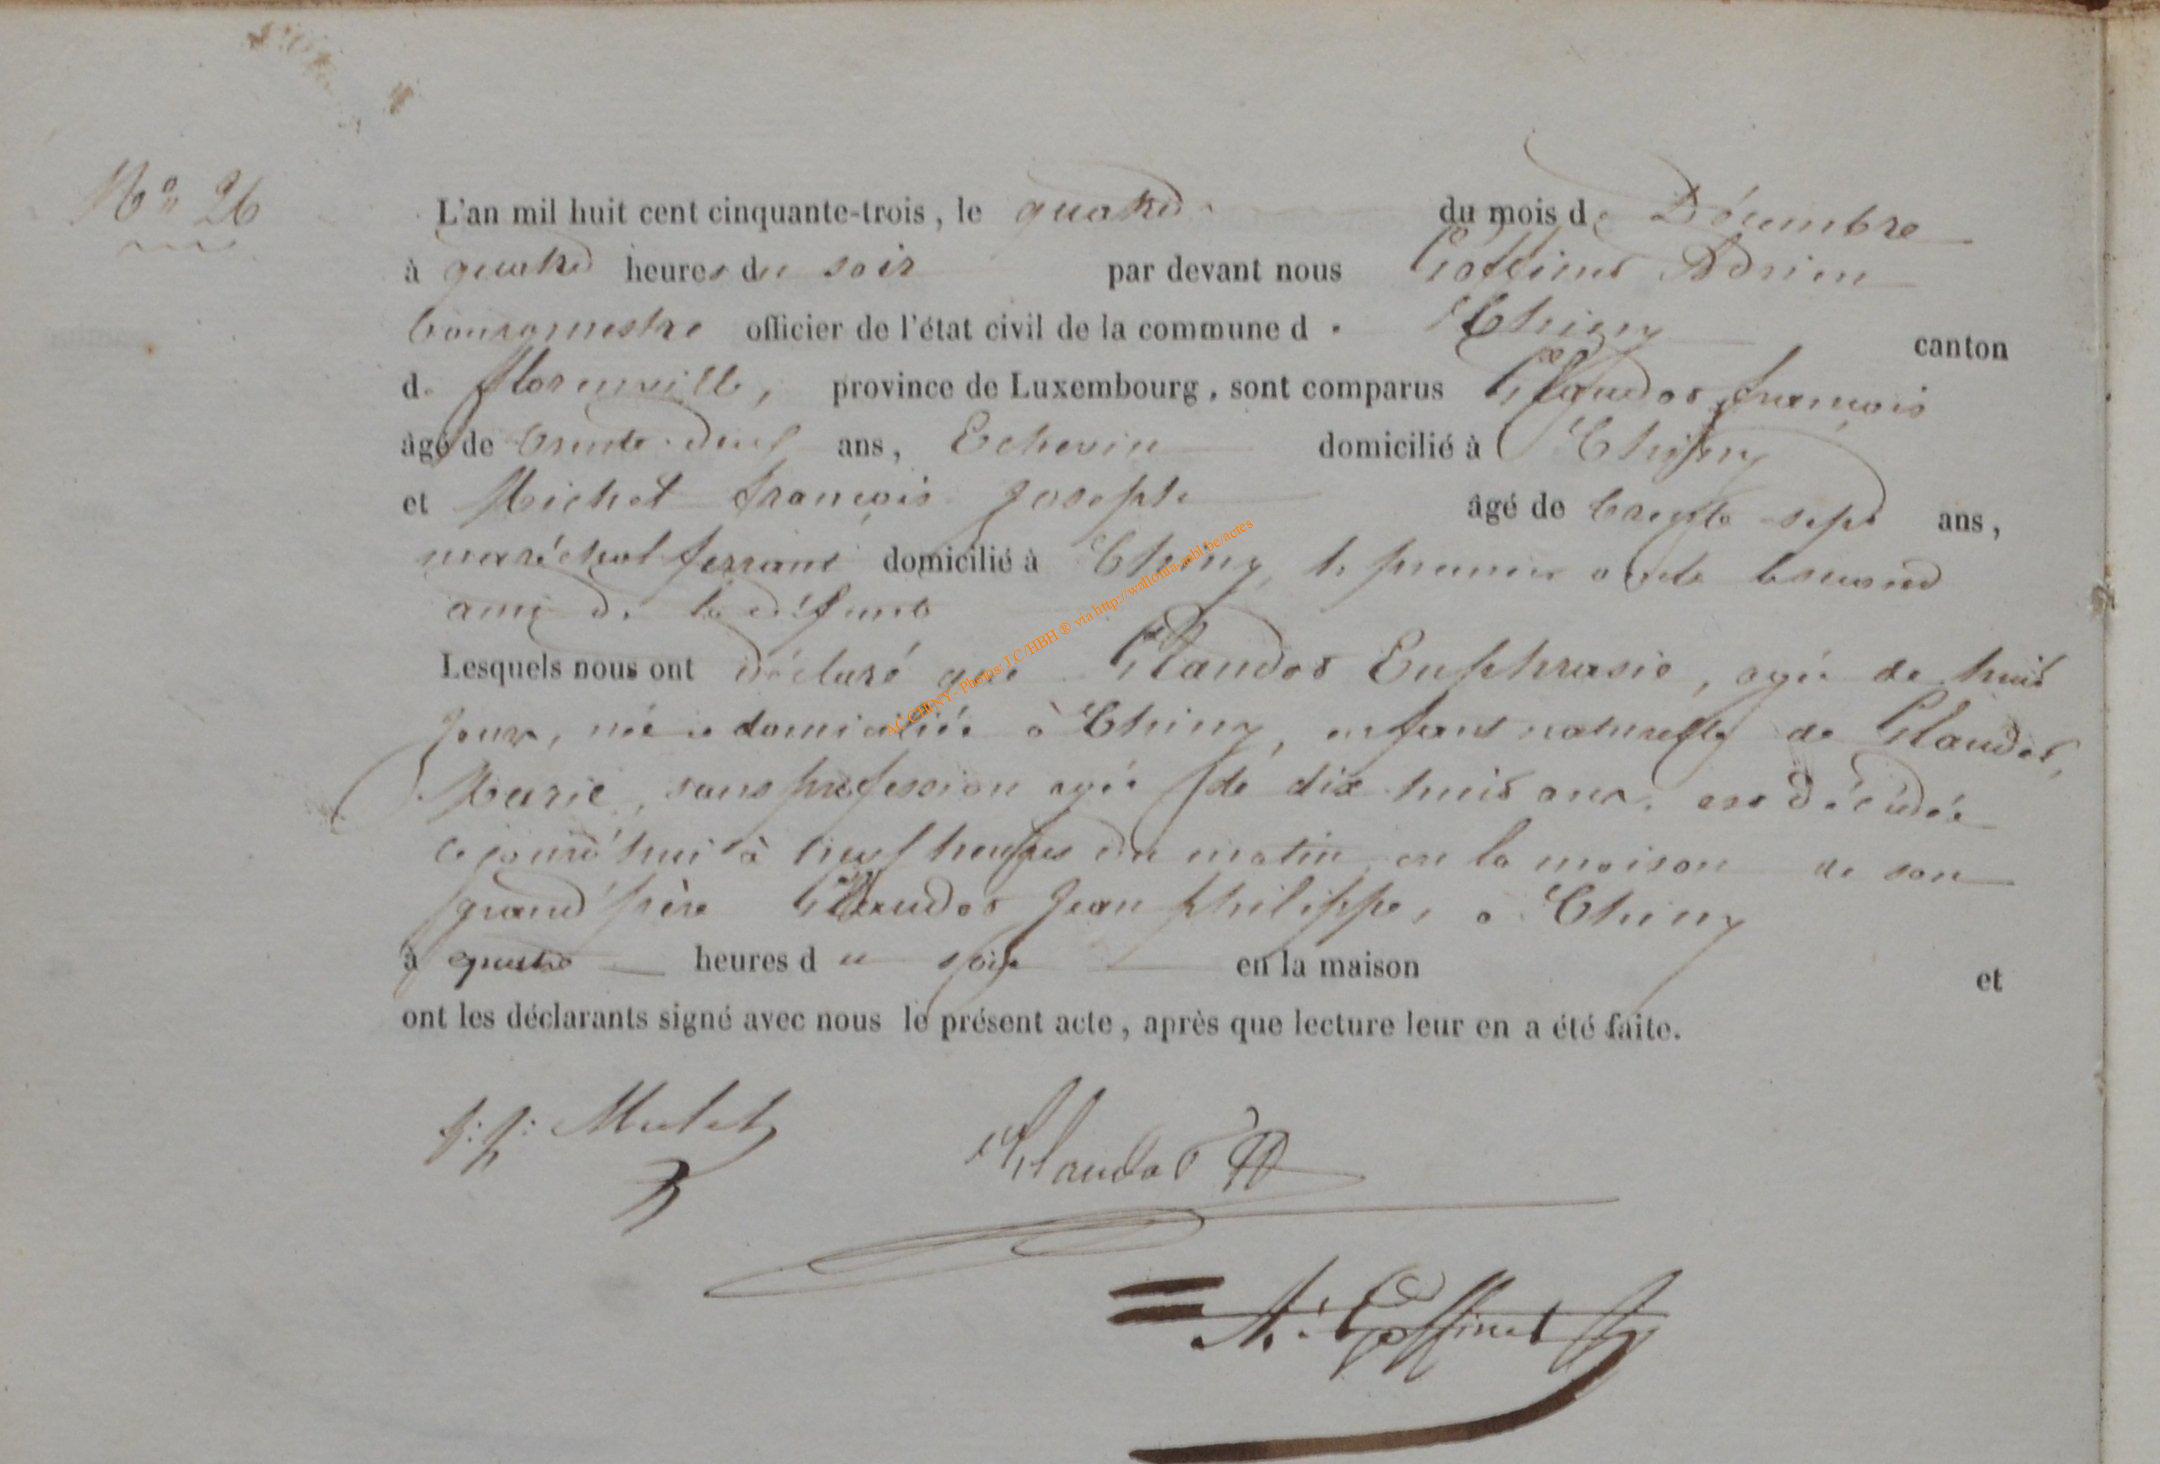 No 26
L'an mil huit cent cinquante-trois, le quatre du mois de Décembre
à quatre heures du soir par devant nous Goffinet Adrien
bourgmestre officier de l'état civil de la commune de Chiny canton
de Florenville, province de Luxembourg, sont comparus Glaudot françois
âgé de trente-deux ans, Echevin domicilié à Chiny
et Michel françois Joseph âgé de trente-sept ans,
maréchal ferrant domicilié à Chiny, le premier oncle le second
ami de la défunte
Lesquels nous ont déclaré que Glaudot Euphrasie, agée de huit
jours, née et domiciliée à Chiny, enfant naturelle de Glaudot,
Marie, sans profession agée de dix huit ans, est décédée
cejourd'hui à neuf heures du matin en la maison de son
grand'père Glaudot Jean philippe, à Chiny
à quatre heures du soir en la maison et
ont les déclarants signé avec nous le présent acte, après que lecture leur en a été faite.
Glaudot
A. Goffinet
AC CHINY - Photos J.C/HBH ® via http://wallonia.asbl.be/actes